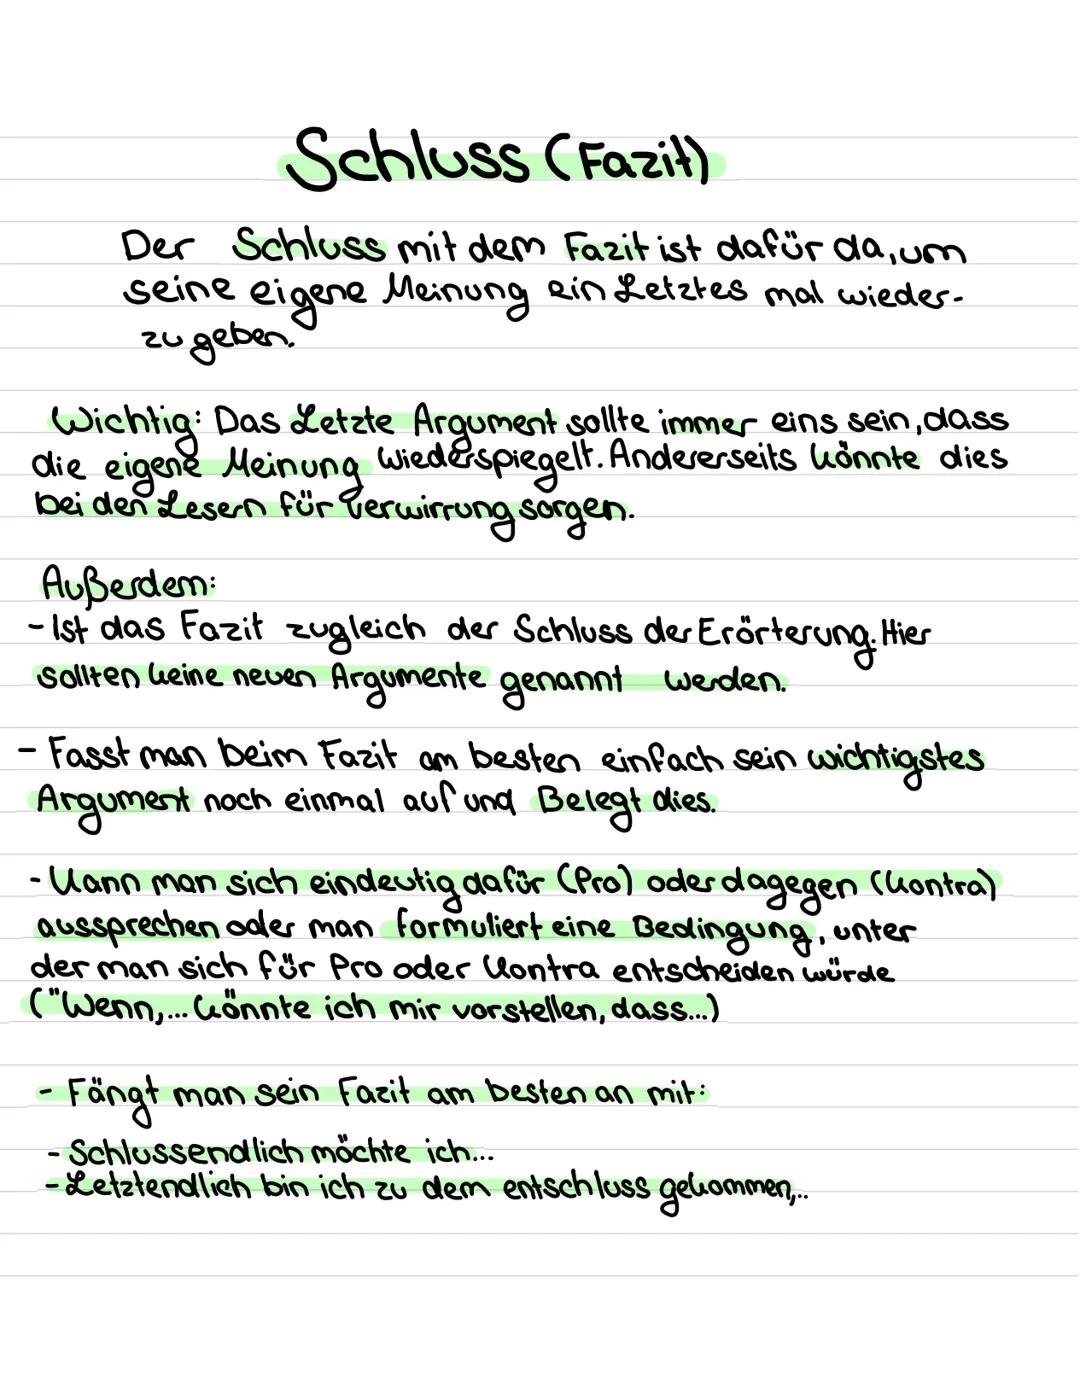 Schluss (Fazit)
Der Schluss mit dem Fazit ist dafür da, um
seine eigene Meinung ein Letztes mal wieder-
zu geben.
Wichtig: Das Letzte Argument sollte immer eins sein, dass
die eigene Meinung wiederspiegelt. Andererseits könnte dies
bei den Lesern für verwirrung sorgen.
Außerdem:
- Ist das Fazit zugleich der Schluss der Erörterung. Hier
sollten keine neuen Argumente genannt werden.
- Fasst man beim Fazit am besten einfach sein wichtigstes
Argument noch einmal auf und Belegt dies.
- Kann man sich eindeutig dafür (Pro) oder dagegen (Kontra)
aussprechen oder man formuliert eine Bedingung, unter
der man sich für Pro oder Kontra entscheiden würde
("Wenn,... könnte ich mir vorstellen, dass...)
- Fängt man sein Fazit am besten an mit:
- Schlussendlich möchte ich...
- Letztendlich bin ich zu dem entschluss gekommen,..